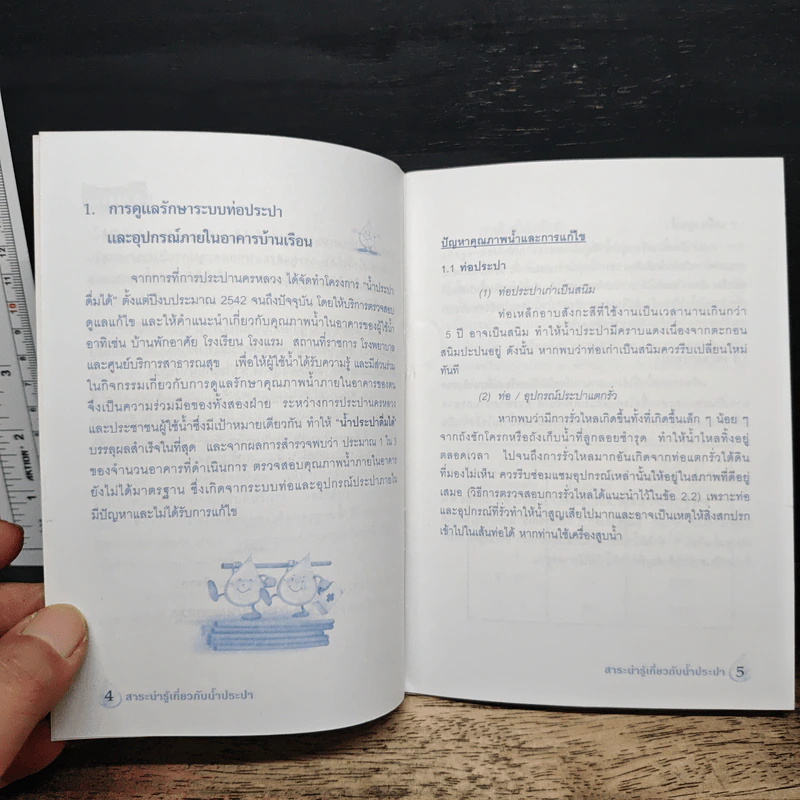 1. การดูแลรักษาระบบท่อประปา
และอุปกรณ์ภายในอาคารบ้านเรือน
จากการที่การประปานครหลวง ได้จัดทำโครงการ "น้ำประปา
ดื่มได้" ตั้งแต่ปีงบประมาณ 2542 จนถึงปัจจุบัน โดยให้บริการตรวจสอบ
ดูแลแก้ไข และให้คำแนะนำเกี่ยวกับคุณภาพน้ำในอาคารของผู้ใช้น้ำ
อาทิเช่น บ้านพักอาศัย โรงเรียน โรงแรม สถานที่ราชการ โรงพยาบาล
และศูนย์บริการสาธารณสุข เพื่อให้ผู้ใช้น้ำได้รับความรู้ และมีส่วนร่วม
ในกิจกรรมเกี่ยวกับการดูแลรักษาคุณภาพน้ำภายในอาคารของตน
จึงเป็นความร่วมมือของทั้งสองฝ่าย ระหว่างการประปานครหลวง
และประชาชนผู้ใช้น้ำซึ่งมีเป้าหมายเดียวกัน ทำให้ "น้ำประปาดื่มได้"
บรรลุผลสำเร็จในที่สุด และจากผลการสำรวจพบว่า ประมาณ 1 ใน
ของจำนวนอาคารที่ดำเนินการ ตรวจสอบคุณภาพน้ำภายในอาคาร
ยังไม่ได้มาตรฐาน ซึ่งเกิดจากระบบท่อและอุปกรณ์ประปาภายใน
มีปัญหาและไม่ได้รับการแก้ไข
4 สาระน่ารู้เกี่ยวกับน้ำประปา
ปัญหาคุณภาพน้ำและการแก้ไข
1.1 ท่อประปา
(1) ท่อประปาเก่าเป็นสนิม
ท่อเหล็กอาบสังกะสีที่ใช้งานเป็นเวลานานเกินกว่า
5 ปี อาจเป็นสนิม ทำให้น้ำประปามีคราบแดงเนื่องจากตะกอน
สนิมปะปนอยู่ ดังนั้น หากพบว่าท่อเก่าเป็นสนิมควรรีบเปลี่ยนใหม่
ทันที
(2) ท่อ / อุปกรณ์ประปาแตกรั่ว
หากพบว่ามีการรั่วไหลเกิดขึ้นทั้งที่เกิดขึ้นเล็ก ๆ น้อย ๆ
จากถังชักโครกหรือถังเก็บน้ำที่ลูกลอยชำรุด ทำให้น้ำไหลทิ้งอยู่
ตลอดเวลา ไปจนถึงการรั่วไหลมากอันเกิดจากท่อแตกรั่วใต้ดิน
ที่มองไม่เห็น ควรรีบซ่อมแซมอุปกรณ์เหล่านั้นให้อยู่ในสภาพที่ดีอยู่
เสมอ (วิธีการตรวจสอบการรั่วไหลได้แนะนำไว้ในข้อ 2.2) เพราะท่อ
และอุปกรณ์ที่รั่วทำให้น้ำสูญเสียไปมากและอาจเป็นเหตุให้สิ่งสกปรก
เข้าไปในเส้นท่อได้ หากท่านใช้เครื่องสูบน้ำ
สาระน่ารู้เกี่ยวกับน้ำประปา 5